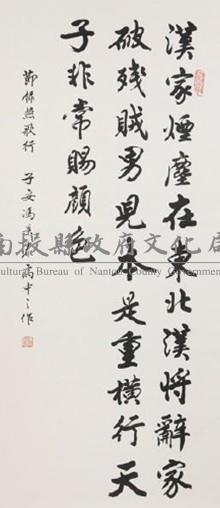 漢家煙塵在東北漢將辭家
破殘賊男兒本是重橫行天
子非常賜顏色
節錄燕歌行
子安馮
高中之作
南投縣政府文化局
Cultural Bureau of Nantou County Government